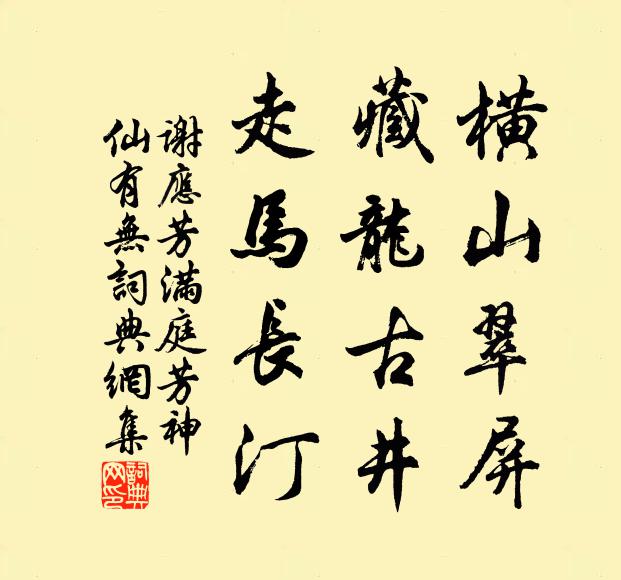 橫山翠屏
藏龍古井
走馬長汀
謝應芳滿庭芳神
仙有無詞典網集
詞典网印